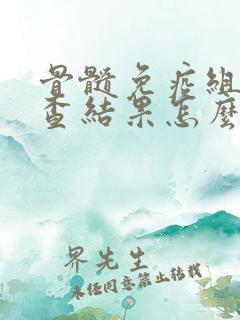 骨髓免疫组
查结果怎麼
界先生
未经同意禁止转载